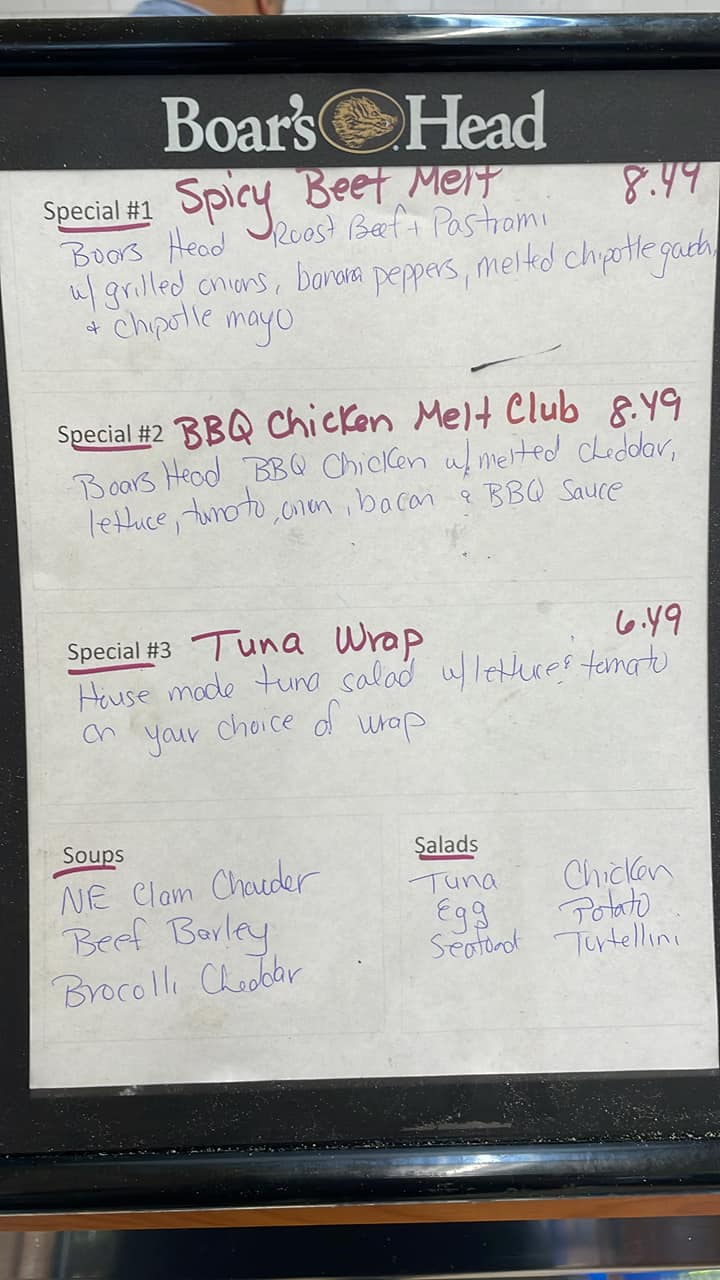 Boar's Head
Special #1 Spicy Beef Melt 8.49
Boars Head Roast Beef + Pastrami
w/ grilled onions, banana peppers, melted chipotle gouda,
+ chipotle mayo
Special #2 BBQ Chicken Melt Club 8.49
Boars Head BBQ Chicken w/ melted cheddar,
lettuce, tomato, onion, bacon & BBQ Sauce
Special #3 Tuna Wrap 6.49
House made tuna salad w/ lettuce & tomato
on your choice of wrap
Soups
NE Clam Chowder
Beef Barley
Brocolli Cheddar
Salads
Tuna Chicken
Egg Potato
Seafood Tortellini